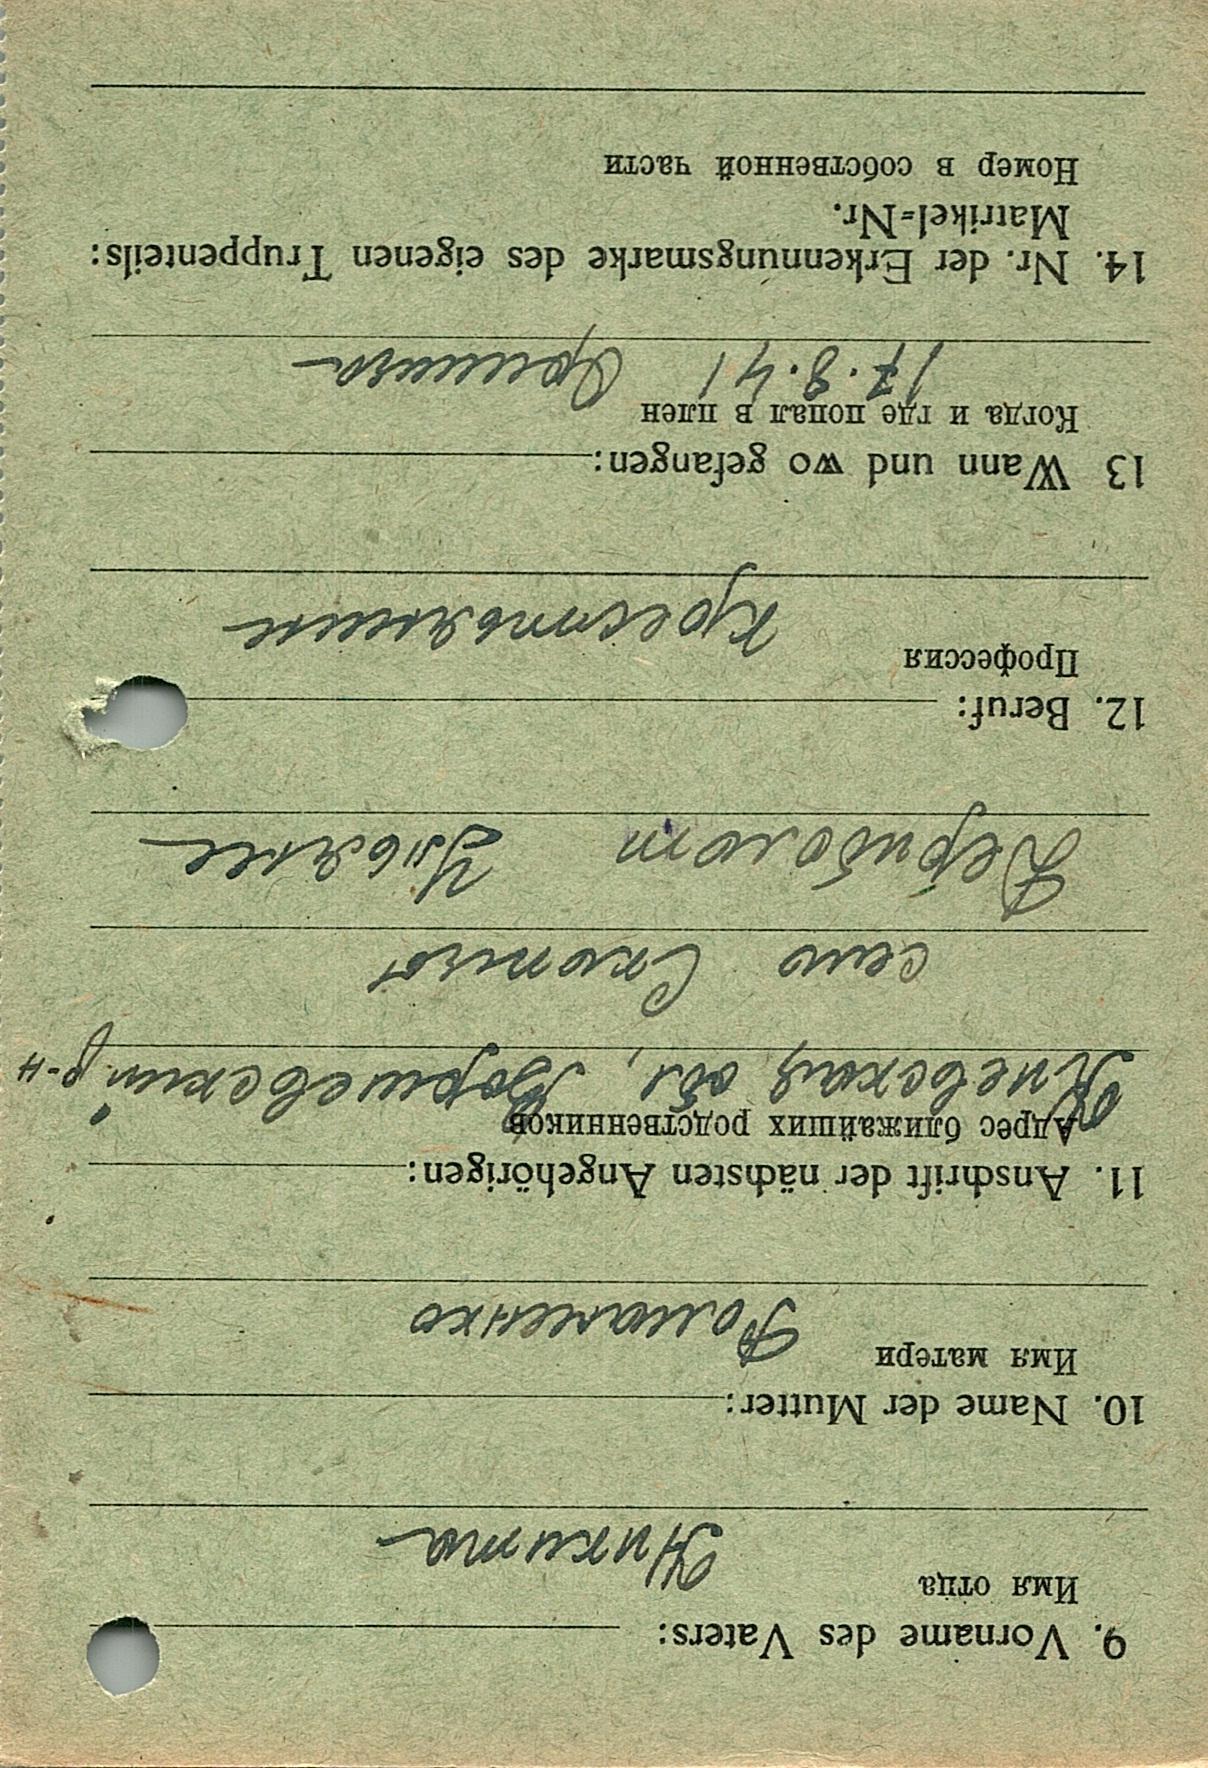 9. Vorname des Vaters:
Имя отца
Никита
10. Name der Mutter:
Имя матери
Романенко
11. Anschrift der nächsten Angehörigen:
Адрес ближайших родственников
Киевская обл,
р-н
село
Дериболот Ульяне
12. Beruf:
Профессия
Крестьянин
13 Wann und wo gefangen:
Когда и где попал в плен
17.8.41
14. Nr. der Erkennungsmarke des eigenen Truppenteils:
Matrikel=Nr.
Номер в собственной части